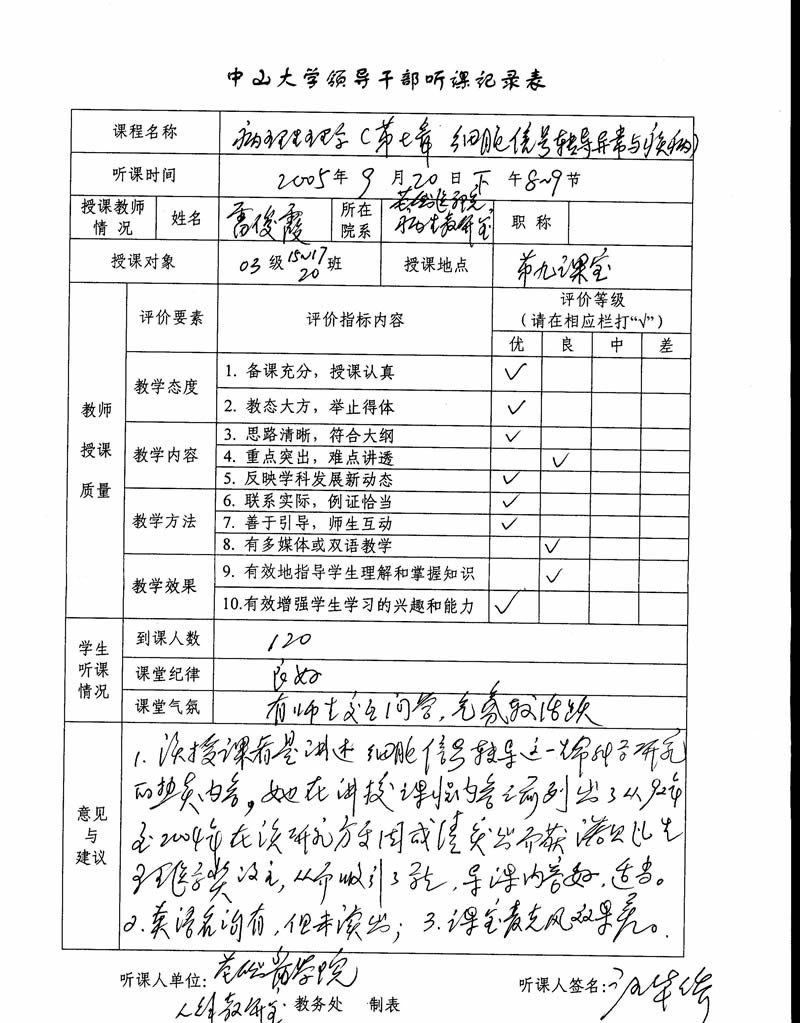 中山大学领导干部听课记录表
课程名称 病理生理学(第七章 细胞信号转导异常与疾病)
听课时间 2005年9月20日下午8~9节
授课教师情况 姓名 雷俊霞 所在院系 基础医学院 病生教研室 职称
授课对象 03级15~17 20班 授课地点 第九课室
教师授课质量 评价要素 评价指标内容 评价等级
(请在相应栏打“√”)
优 良 中 差
教学态度 1. 备课充分，授课认真 √
2. 教态大方，举止得体 √
教学内容 3. 思路清晰，符合大纲 √
4. 重点突出，难点讲透 √
5. 反映学科发展新动态 √
教学方法 6. 联系实际，例证恰当 √
7. 善于引导，师生互动 √
8. 有多媒体或双语教学 √
教学效果 9. 有效地指导学生理解和掌握知识 √
10.有效增强学生学习的兴趣和能力 √
学生听课情况 到课人数 120
课堂纪律 良好
课堂气氛 有师生交互问学，气氛较活跃
意见与建议 1. 该授课者是讲述细胞信号转导这一生命科学研究
的热点内容，她在讲授课程内容之前列出了从92年
至2004年在该研究方面因成绩突出而获诺贝尔生
理医学奖得主，从而吸引了学生，导课内容好，适当。
2. 英语名词有，但未读出；3. 课室麦克风效果差。
听课人单位: 基础医学院 听课人签名:
教研室 教务处 制表